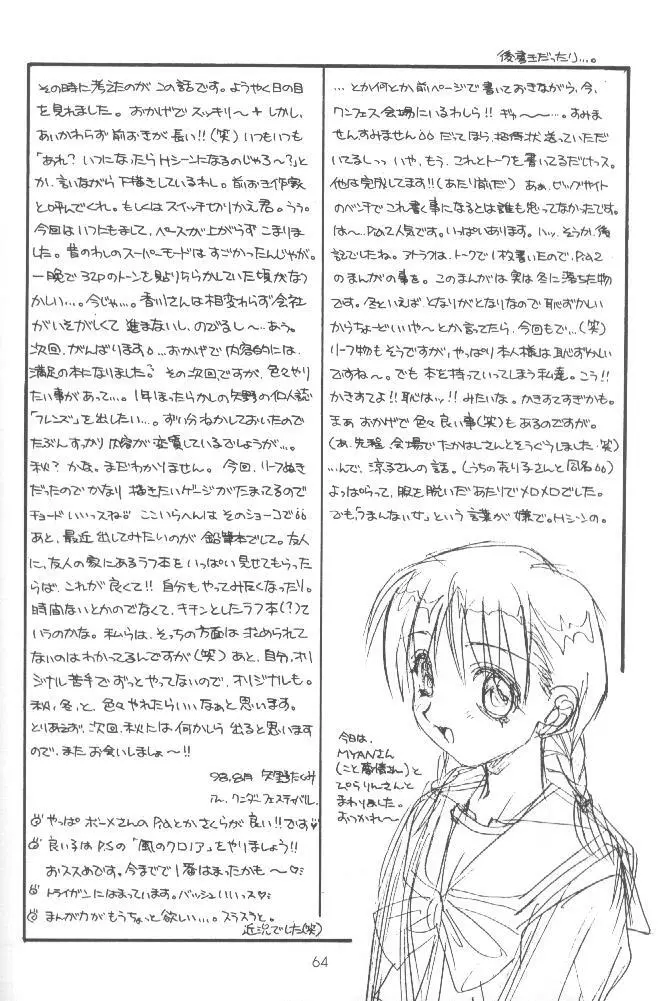 後書きだったり…。
…とか何とか、前ページで書いておきながら、今、
ワンフェス会場にいるわしら!! ギャ〜〜…。すみま
せんすみません だってほら、招待状送っていただ
いてるしっっ いや、もう、これとトークを書いてるだけっス。
他は完成してます!!(あたり前だ) あぁ、ビッグサイト
のベンチでこれ書く事になるとは誰も思ってなかったです。
は〜、P.ia2人気です。いっぱいあります。ハッ、そうか、後
記でしたね。アトラフは、トークで1枚書いたので、P.ia2
のまんがの事を。このまんがは実は冬に落ちた物
です。冬といえば、となりがとなりなので恥ずかしい
からちょーどいいや〜とか言ってたら、今回もで…(笑)
リーフ物もそうですが、やっぱり本人様は恥ずかしい
ですね〜。でも本を持っていってしまう私達。こう!!
かきすてよ!! 恥はッ!! みたいな。かきすてすぎかも。
まぁ おかげで色々良い事(笑)もあるのですが。
(あ、先程、会場でたかはしさんとそうぐうしました・笑)
…んで、涼子さんの話。(うちの売り子さんと同名)
よっぱらって、服を脱いだあたりでメロメロでした。
でも「つまんない女」という言葉が嫌で。Hシーンの。
その時に考えたのがこの話です。ようやく日の目
を見れました。おかげでスッキリ〜+ しかし、
あいかわらず 前おきが長い!!(笑) いつもいつも
「あれ? いつになったらHシーンになるのじゃろ〜?」と
か、言いながら下描きしているわし。前おき作家
と呼んでくれ。もしくはスイッチきりかえ君。うぅ。
今回はいつにもまして、ペースが上がらずこまりま
した。昔のわしのスーパーモードはすごかったんじゃが。
一晩で32Pのトーンを貼りちらかしていた頃がなつ
かしい…。今じゃ…。香川さんは相変わらず会社
がいそがしくて 進まないし、のびるし〜、あぅ。
次回、がんばります。…おかげで内容的には、
満足の本になりました? その次回ですが、色々やり
たい事があって…。1年ほったらかしの矢野の個人誌
「フレンズ」を出したい…。ずい分ねかしておいたので
たぶんすっかり内容が変質しているでしょうが…。
秋? かな。まだわかりません。今回、リーフぬき
だったのでかなり描きたいゲージがたまってるので
チョードいいっスね ここいらへんは そのショーコで
あと、最近出してみたいのが鉛筆本でして。友人
に、友人の家にあるラフ本をいっぱい見せてもらった
らば、これが良くて!! 自分もやってみたくなったり。
時間ないとかのでなくて、キチンとしたラフ本(?)て
いうのかな。私らは、そっちの方面は求められて
ないのはわかってるんですが(笑) あと、自分、オリ
ジナル苦手でずっとやってないので、オリジナルも。
秋、冬、と、色々やれたらいいなぁと思います。
とりあえず、次回、秋には何かしら出ると思います
ので、またお会いしましょ〜!!
98.8月 矢野たくみ
アー、ワンダーフェスティバル。
やっぱボーメさんのP.iaとかさくらが良い!!です♥
良いろはP.S.の「風のクロノア」をやりましょう!!
おススメです。今までで1番はまったかも〜♡
トライガンにはまっています。バッシュいいっス♡
まんが力がもうちょっと欲しい…。スラスラと。
近況でした(笑)
今日は、
MYANさん
(こと さん)と
ぴらりんさんと
まわりました。
おつかれ〜
64